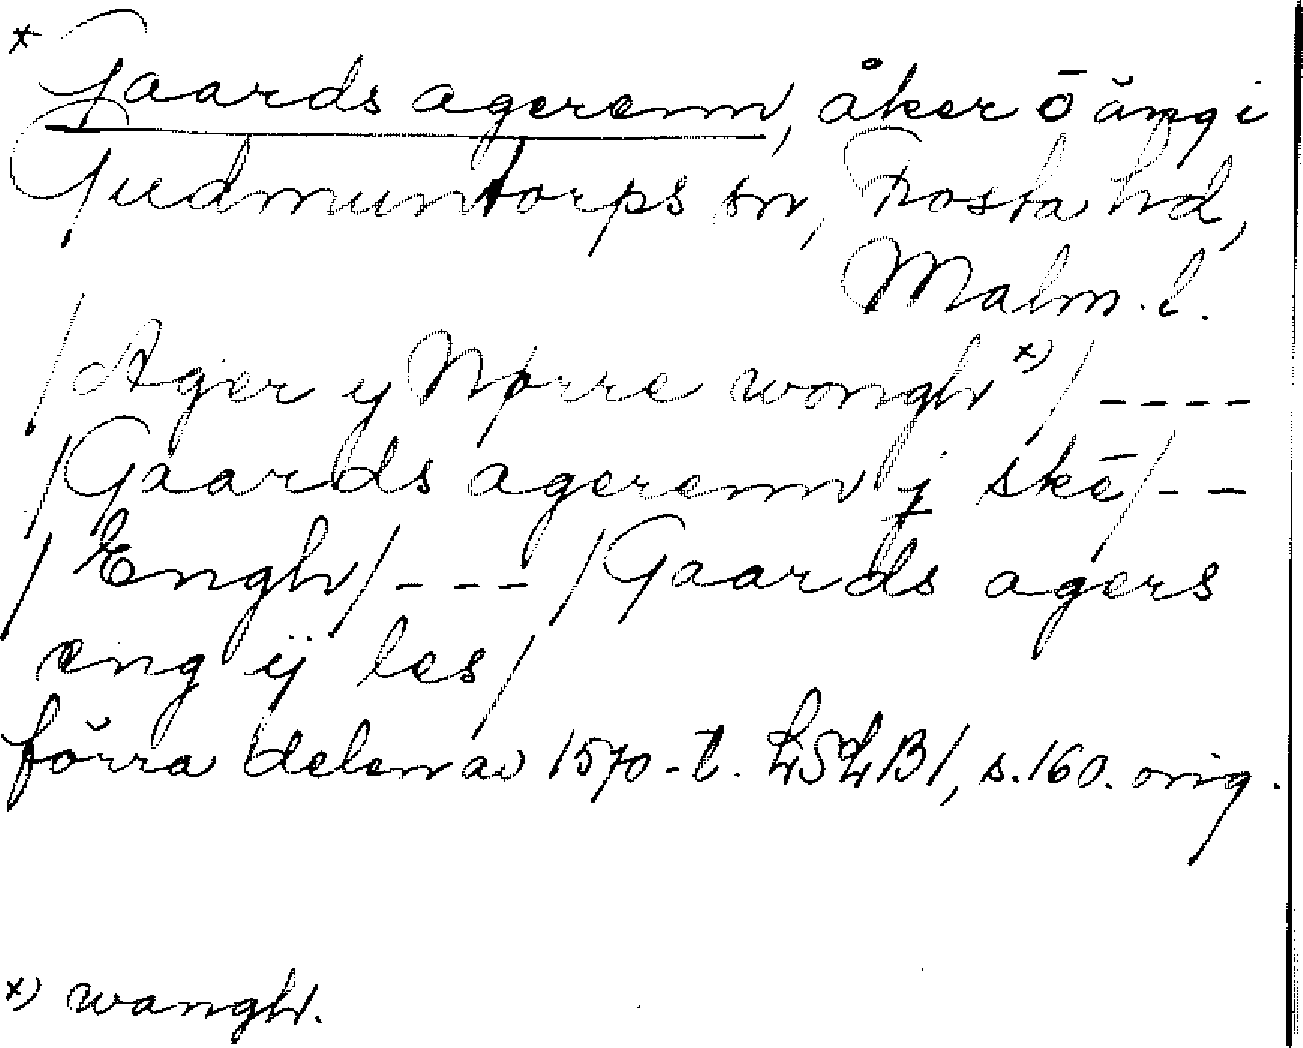 * Gaards agerenn, åker ō äng i
Gudmuntorps sn, Frosta hd,
Malm. l.
/Ager y Nørre wongh x)/ ----
/Gaards agerenn j skē/--
/Engh/---/Gaards agers
eng ij les/
förra delen av 1570-t. LSLB1, s. 160. orig.
x) wangh.